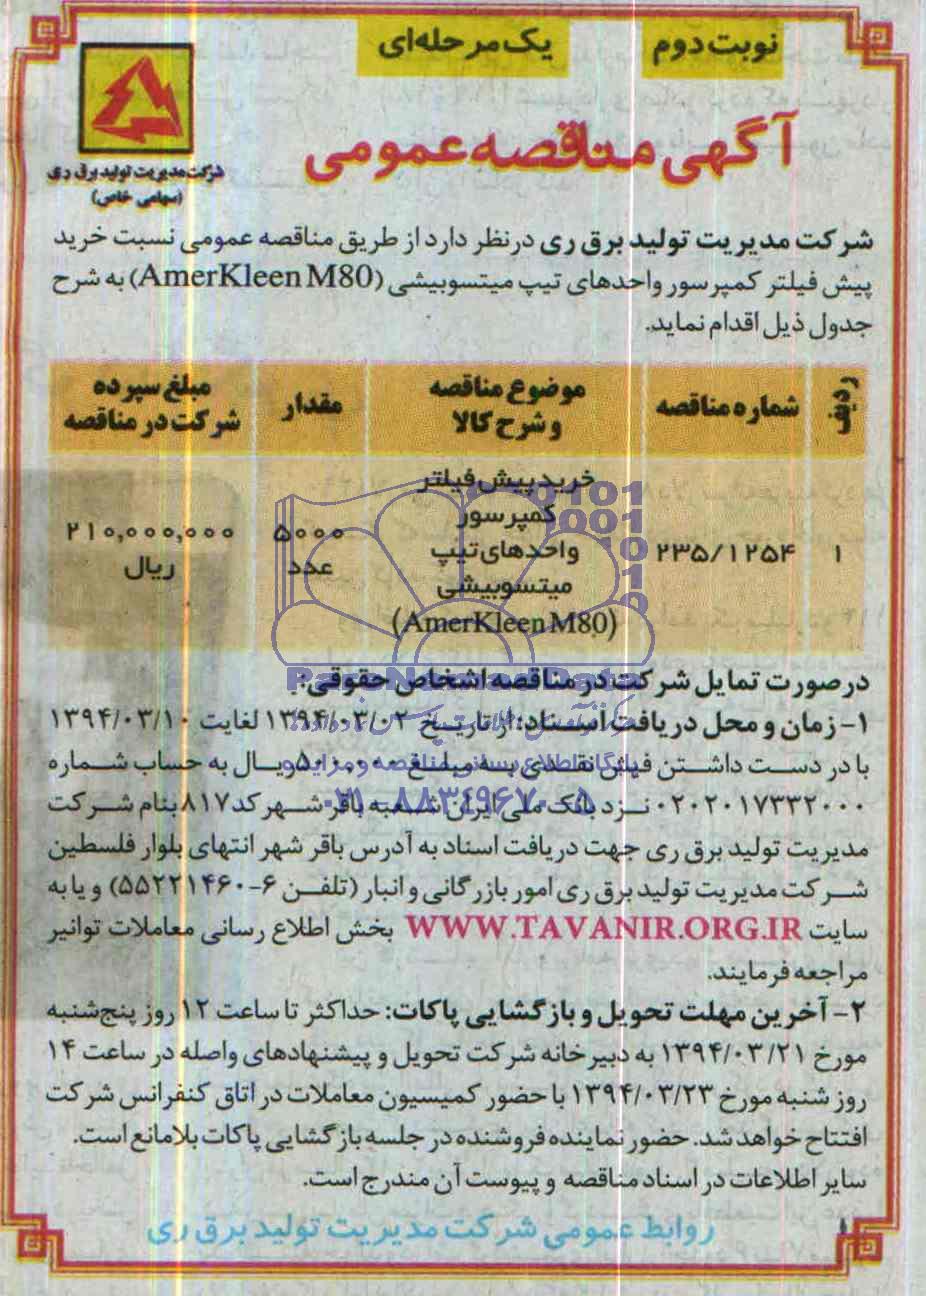 نوبت دوم
یک مرحله‌ای
آگهی مناقصه عمومی
شرکت مدیریت تولید برق ری
(سهامی خاص)
شرکت مدیریت تولید برق ری در نظر دارد از طریق مناقصه عمومی نسبت خرید
پیش فیلتر کمپرسور واحدهای تیپ میتسوبیشی (AmerKleen M80) به شرح
جدول ذیل اقدام نماید.
ردیف
شماره مناقصه
موضوع مناقصه
و شرح کالا
مقدار
مبلغ سپرده
شرکت در مناقصه
۱
۲۳۵/۱۲۵۴
خرید پیش فیلتر
کمپرسور
واحدهای تیپ
میتسوبیشی
(AmerKleen M80)
۵۰۰۰
عدد
۲۱۰,۰۰۰,۰۰۰
ریال
در صورت تمایل شرکت در مناقصه اشخاص حقوقی:
۱- زمان و محل دریافت اسناد: از تاریخ ۱۳۹۴/۰۳/۰۲ لغایت ۱۳۹۴/۰۳/۱۰
با در دست داشتن فیش نقدی به مبلغ ریال به حساب شماره
۰۲۰۲۰۱۷۳۳۲۰۰۰ نزد بانک ملی ایران شعبه باقر شهر کد ۸۱۷ بنام شرکت
مدیریت تولید برق ری جهت دریافت اسناد به آدرس باقر شهر انتهای بلوار فلسطین
شرکت مدیریت تولید برق ری امور بازرگانی و انبار (تلفن ۶-۵۵۲۲۱۴۶۰) و یا به
سایت WWW.TAVANIR.ORG.IR بخش اطلاع رسانی معاملات توانیر
مراجعه فرمایند.
۲- آخرین مهلت تحویل و بازگشایی پاکات: حداکثر تا ساعت ۱۲ روز پنج‌شنبه
مورخ ۱۳۹۴/۰۳/۲۱ به دبیرخانه شرکت تحویل و پیشنهادهای واصله در ساعت ۱۴
روز شنبه مورخ ۱۳۹۴/۰۳/۲۳ با حضور کمیسیون معاملات در اتاق کنفرانس شرکت
افتتاح خواهد شد. حضور نماینده فروشنده در جلسه بازگشایی پاکات بلامانع است.
سایر اطلاعات در اسناد مناقصه و پیوست آن مندرج است.
روابط عمومی شرکت مدیریت تولید برق ری
پایگاه اطلاع رسانی مناقصه و مزایده